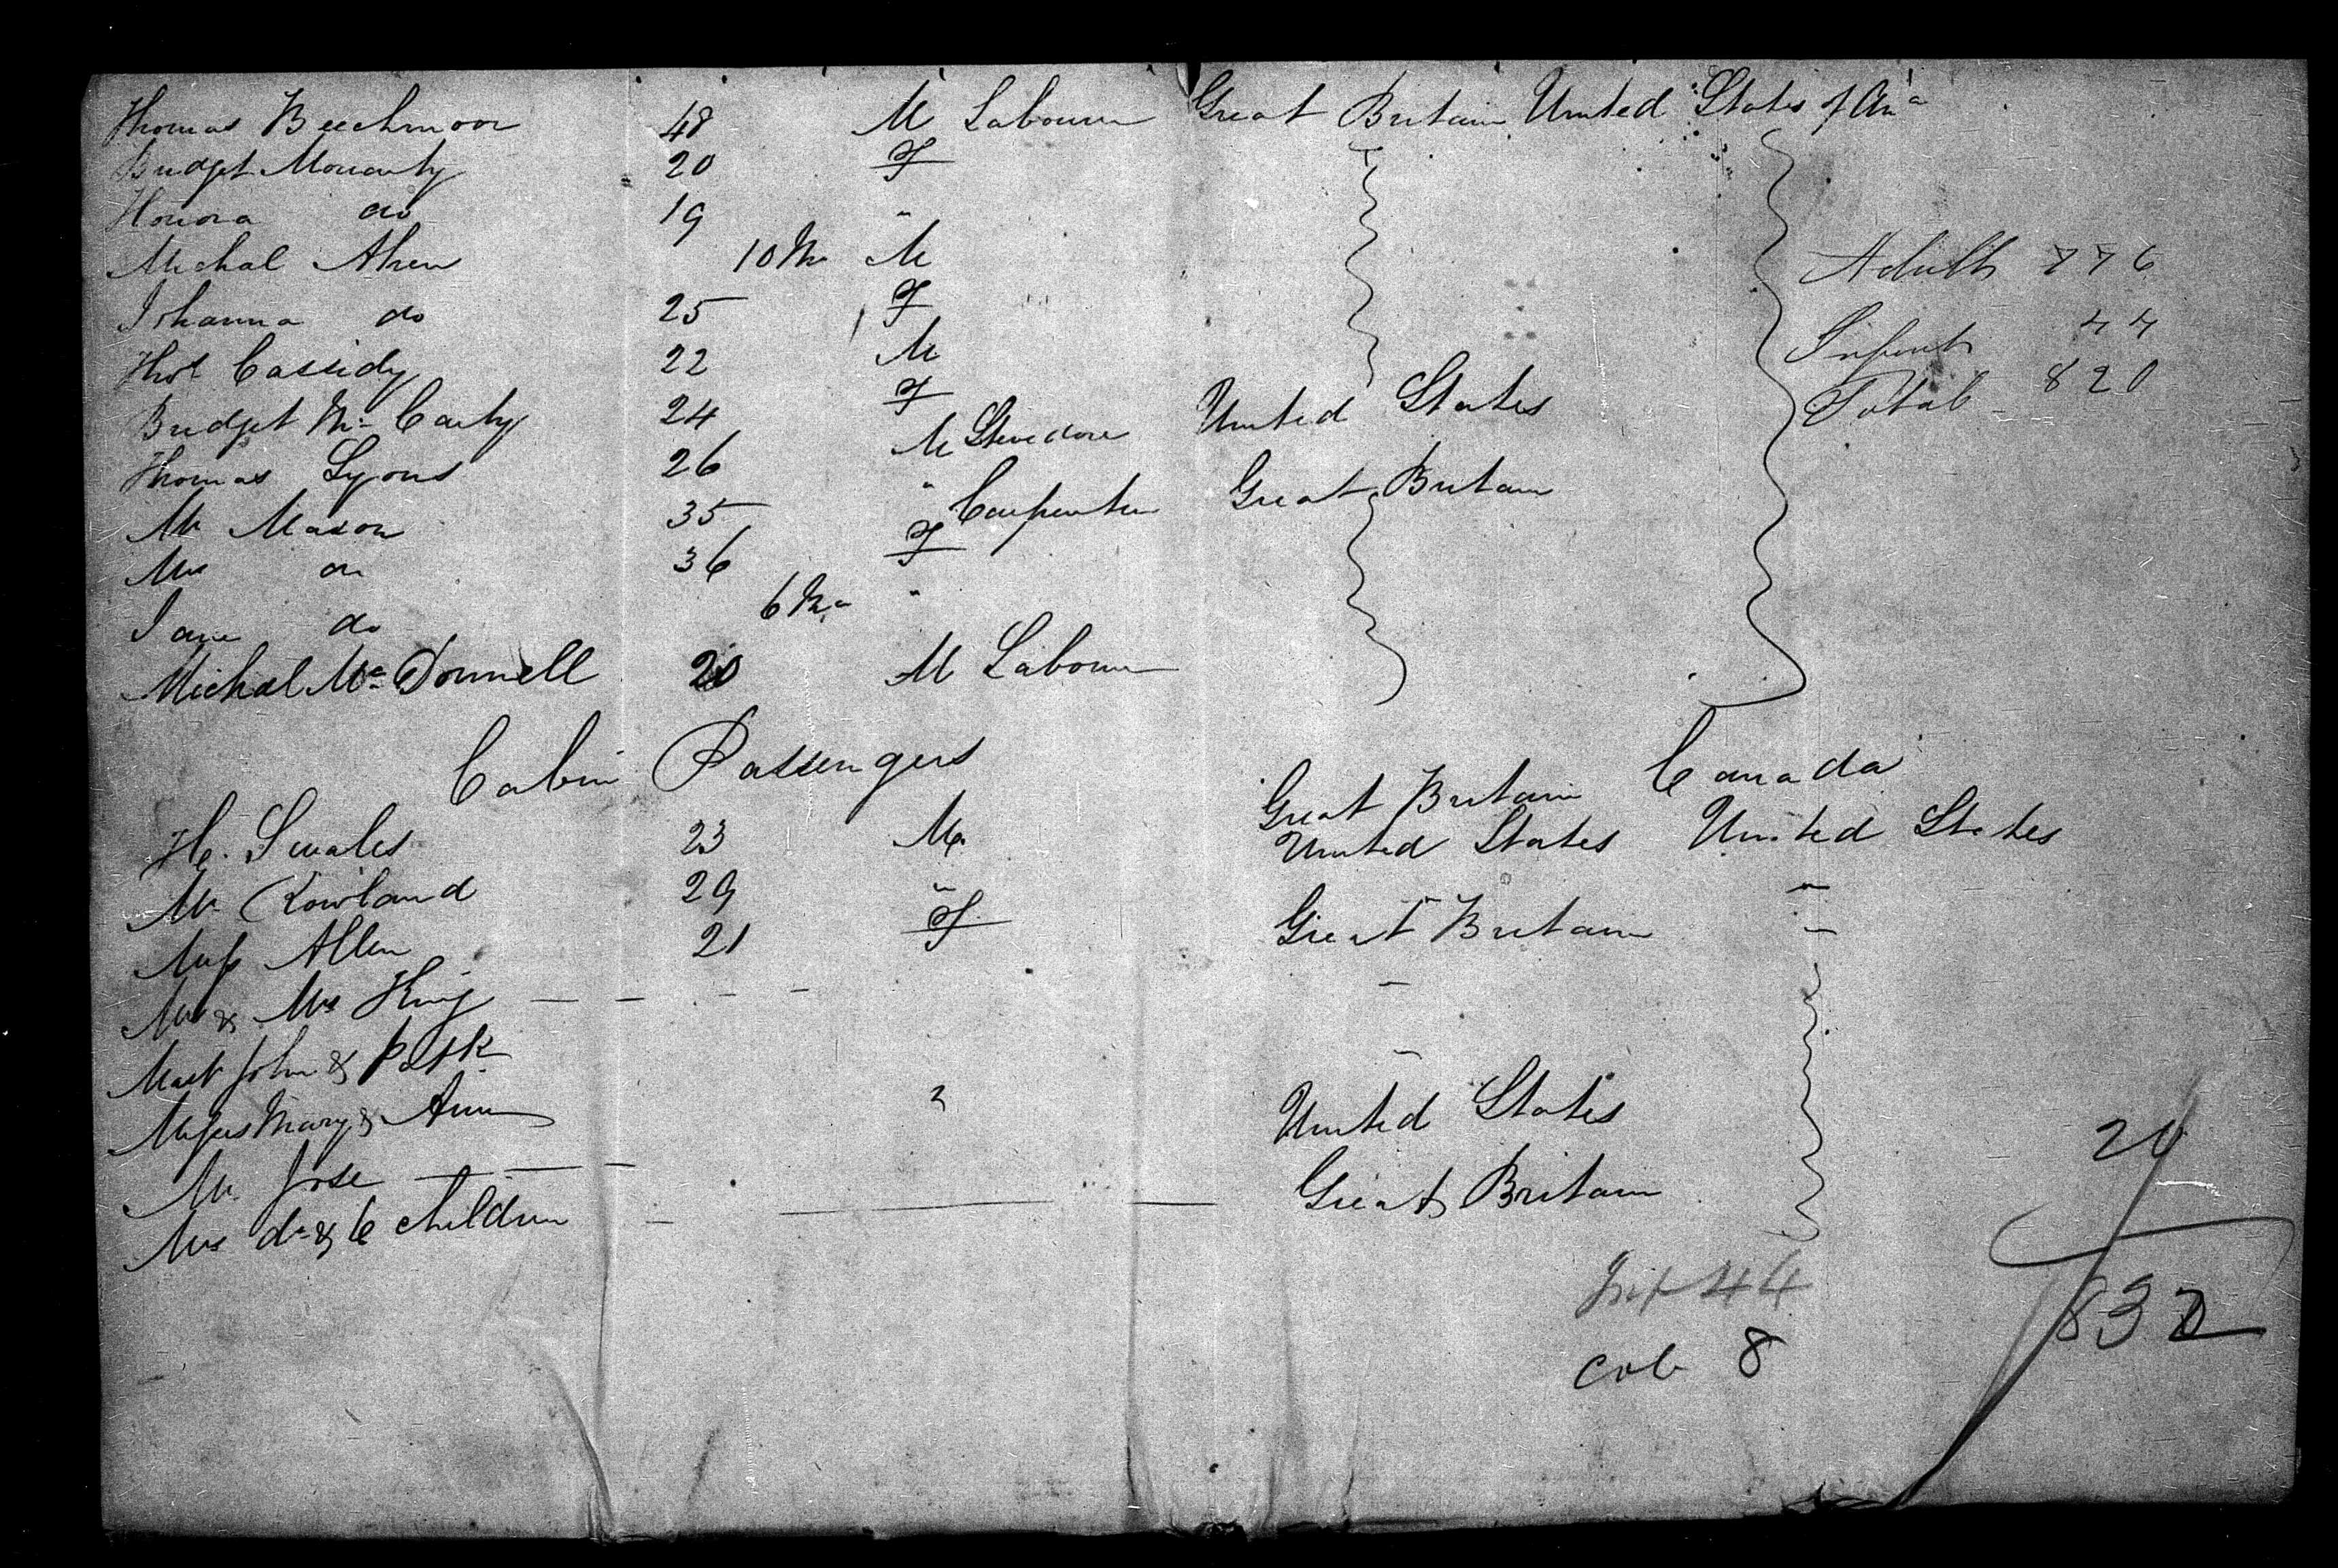 Thomas Beechmoor 48 M Labourer Great Britain United States of Ama
Bridget Moriarty 20 F
Honora do 19 "
Michal Ahern 10 Mo M
Johanna do 25 F
Thos Cassidy 22 M
Bridget Mc Carty 24 F
Thomas Lyons 26 M Stevedore United States
Mr Mason 35 " Carpenter Great Britain
Mrs do 36 F
Jane do 6 Mo "
Michal Mc Donnell 20 M Labourer
Adults 776
Infants 44
Total 820
Cabin Passengers
H. Swales 23 M Great Britain Canada
Mr Rowland 29 " United States United States
Miss Allen 21 F Great Britain "
Mr & Mrs King — — - - - " -
Mast John & Patk "
Misses Mary & Ann
Mr. Jose — — - United States
Mrs do & 6 children - — — Great Britain
Inf 44
cab 8
20
832